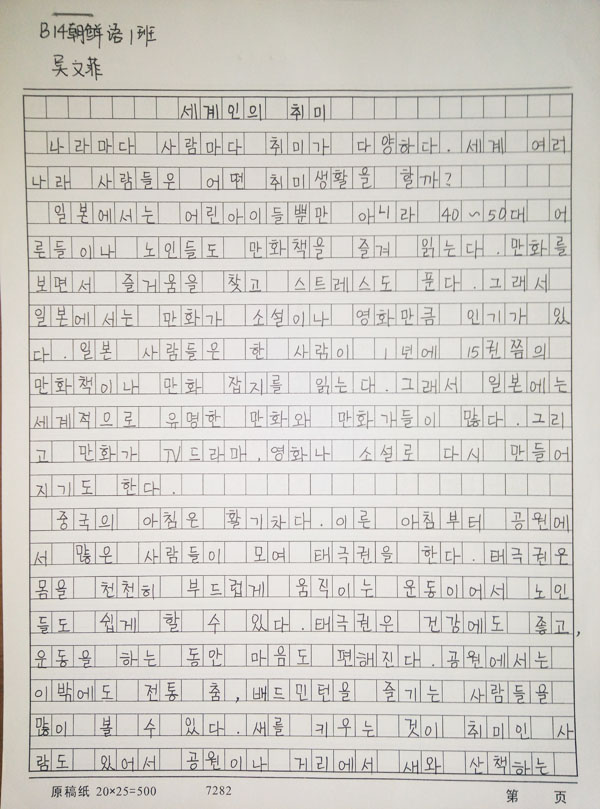 B14朝鲜语1班
吴文菲
세계인의 취미
나라마다 사람마다 취미가 다양하다. 세계 여러
나라 사람들은 어떤 취미생활을 할까?
일본에서는 어린아이들뿐만 아니라 40~50대 어
른들이나 노인들도 만화책을 즐겨 읽는다. 만화를
보면서 즐거움을 찾고 스트레스도 푼다. 그래서
일본에서는 만화가 소설이나 영화만큼 인기가 있
다. 일본 사람들은 한 사람이 1년에 15권쯤의
만화책이나 만화 잡지를 읽는다. 그래서 일본에는
세계적으로 유명한 만화와 만화가들이 많다. 그리
고 만화가 TV드라마, 영화나 소설로 다시 만들어
지기도 한다.
중국의 아침은 활기차다. 이른 아침부터 공원에
서 많은 사람들이 모여 태극권을 한다. 태극권은
몸을 천천히 부드럽게 움직이는 운동이어서 노인
들도 쉽게 할 수 있다. 태극권은 건강에도 좋고,
운동을 하는 동안 마음도 편해진다. 공원에서는
이밖에도 전통 춤, 배드민턴을 즐기는 사람들을
많이 볼 수 있다. 새를 키우는 것이 취미인 사
람도 있어서 공원이나 거리에서 새와 산책하는
原稿纸 20×25=500 7282 第 页